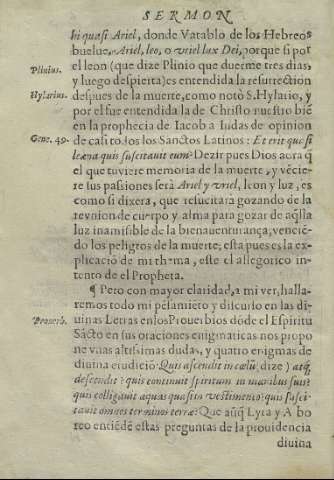 SERMON
hi quasi Ariel, donde Vatablo de los Hebreos
buelue, Ariel, leo, o vriel lux Dei, porque si por
Plinius.
el leon (que dize Plinio que duerme tres dias,
y luego despierta) es entendida la resurrection
Hylarius.
despues de la muerte, como notò S. Hylario, y
por el fue entendida la de Christo nuestro biẽ
Gene. 49.
en la prophecia de Iacob a Iudas de opinion
de casi todos los Sanctos Latinos: Et erit quasi
leæna quis suscitauit eum? Dezir pues Dios aora q̃
el que tuuiere memoria de la muerte, y vẽcie-
re sus passiones serà Ariel y vriel, leon y luz, es
como si dixera, que resucitarà gozando de la
reunion de cuerpo y alma para gozar de aq̃lla
luz inamisible de la bienauenturança, venciẽ-
do los peligros de la muerte; esta pues es la ex-
plicacion de mi thema, este el allegorico in-
tento de el Propheta.
¶ Pero con mayor claridad, a mi ver, halla-
remos todo mi pẽsamiẽto y discurso en las di-
Prouerb.
uinas Letras en los Prouerbios dõde el Espiritu
Sãcto en sus oraciones enigmaticas nos propo
ne vnas altissimas dudas, y quatro enigmas de
diuina erudiciõ: Quis ascendit in cœlũ (dize) atq;
descendit? quis continuit spiritum in manibus suis?
quis colligauit aquas quasi in vestimento? quis susci-
tauit omnes terminos terræ? Que aũq̃ Lyra y A bo
reo entiẽdẽ estas preguntas de la prouidencia
diuina